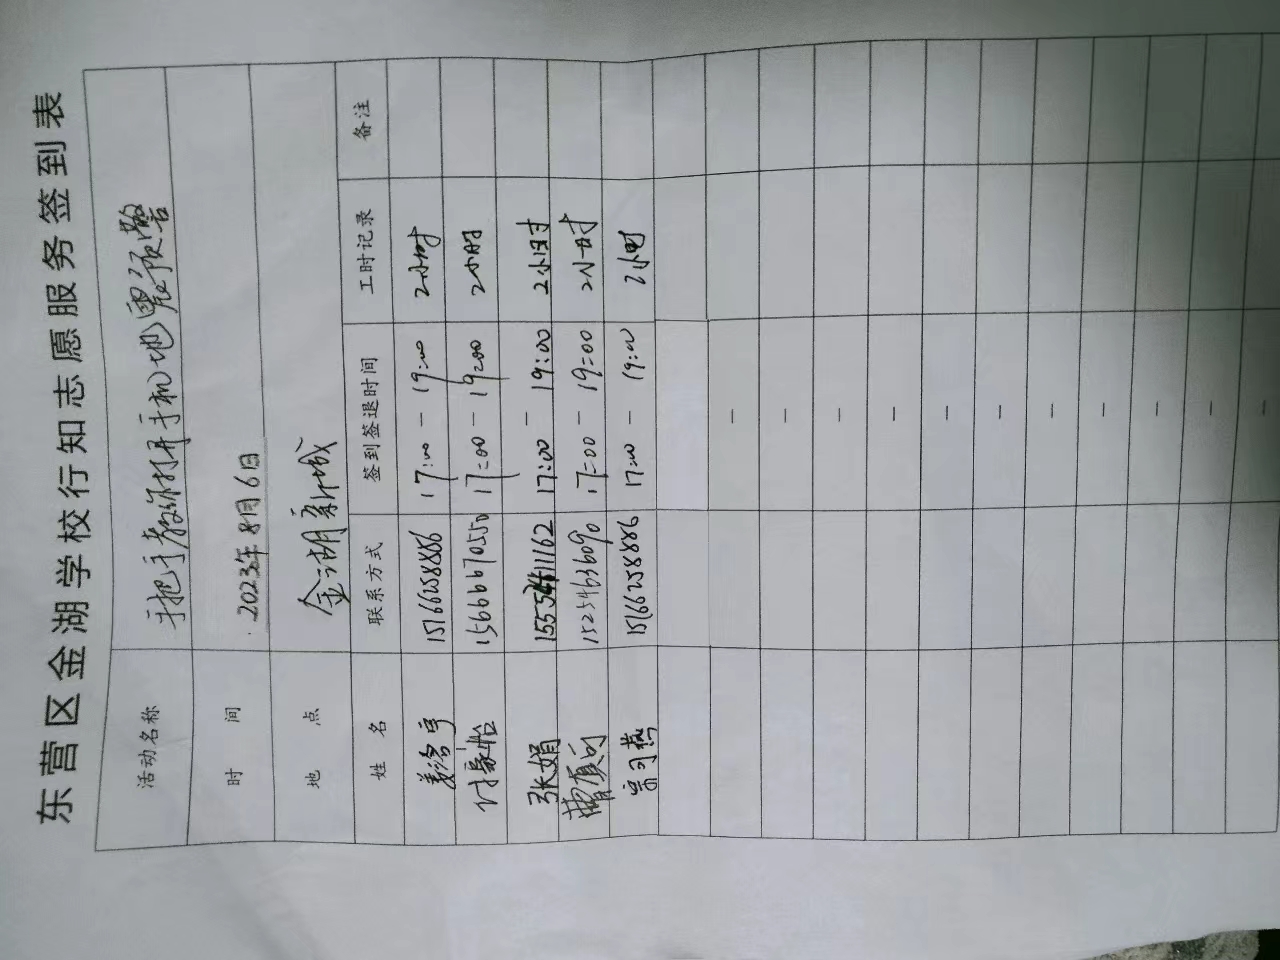 东营区金湖学校行知志愿服务签到表
活动名称 手把手教你打开手机地震预警
时间 2023年8月6日
地点 金湖新城
姓名 联系方式 签到签退时间 工时记录 备注
15166258886 17:00 - 19:00 2小时
付家怡 15666670550 17:00 - 19:00 2小时
张娟 17:00 - 19:00 2小时
15254636090 17:00 - 19:00 2小时
15166258886 17:00 - 19:00 2小时
-
-
-
-
-
-
-
-
-
-
-